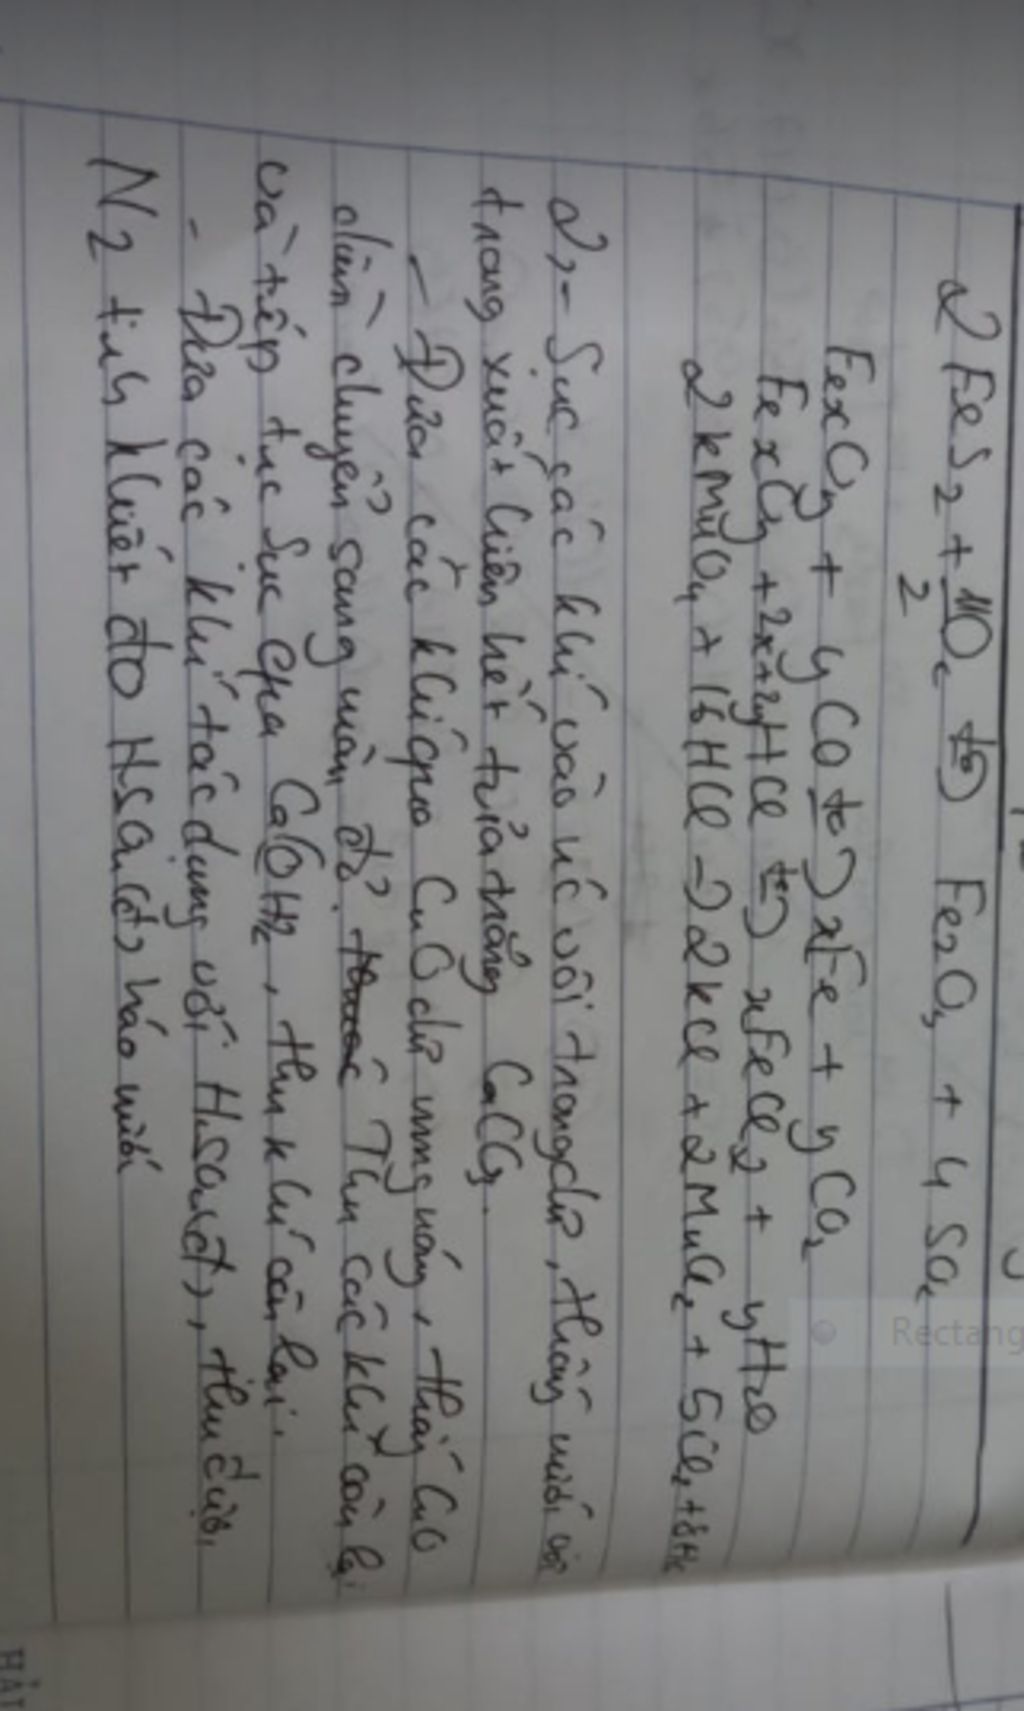 2 FeS2 + 11/2 O2 to→ Fe2O3 + 4 SO2
FexOy + yCO to→ xFe + yCO2
FexOy + 2x+2yHCl to→ xFeCl2 + yH2O
2 KMnO4 + 16HCl → 2KCl + 2MnCl2 + 5Cl2 + 8H2
2, - Sục các khí vào nước vôi trong dư, thấy nước vôi
trong xuất hiện kết tủa trắng CaCO3.
- Đưa các khí qua CuO dư nung nóng, thấy CuO
dần chuyển sang màu đỏ. Thu các khí còn lại
và tiếp tục sục qua Ca(OH)2, thu khí còn lại.
- Đưa các khí tác dụng với H2SO4(đ), thu được
N2 tinh khiết do H2SO4(đ) háo nước
Rectang
HẢI